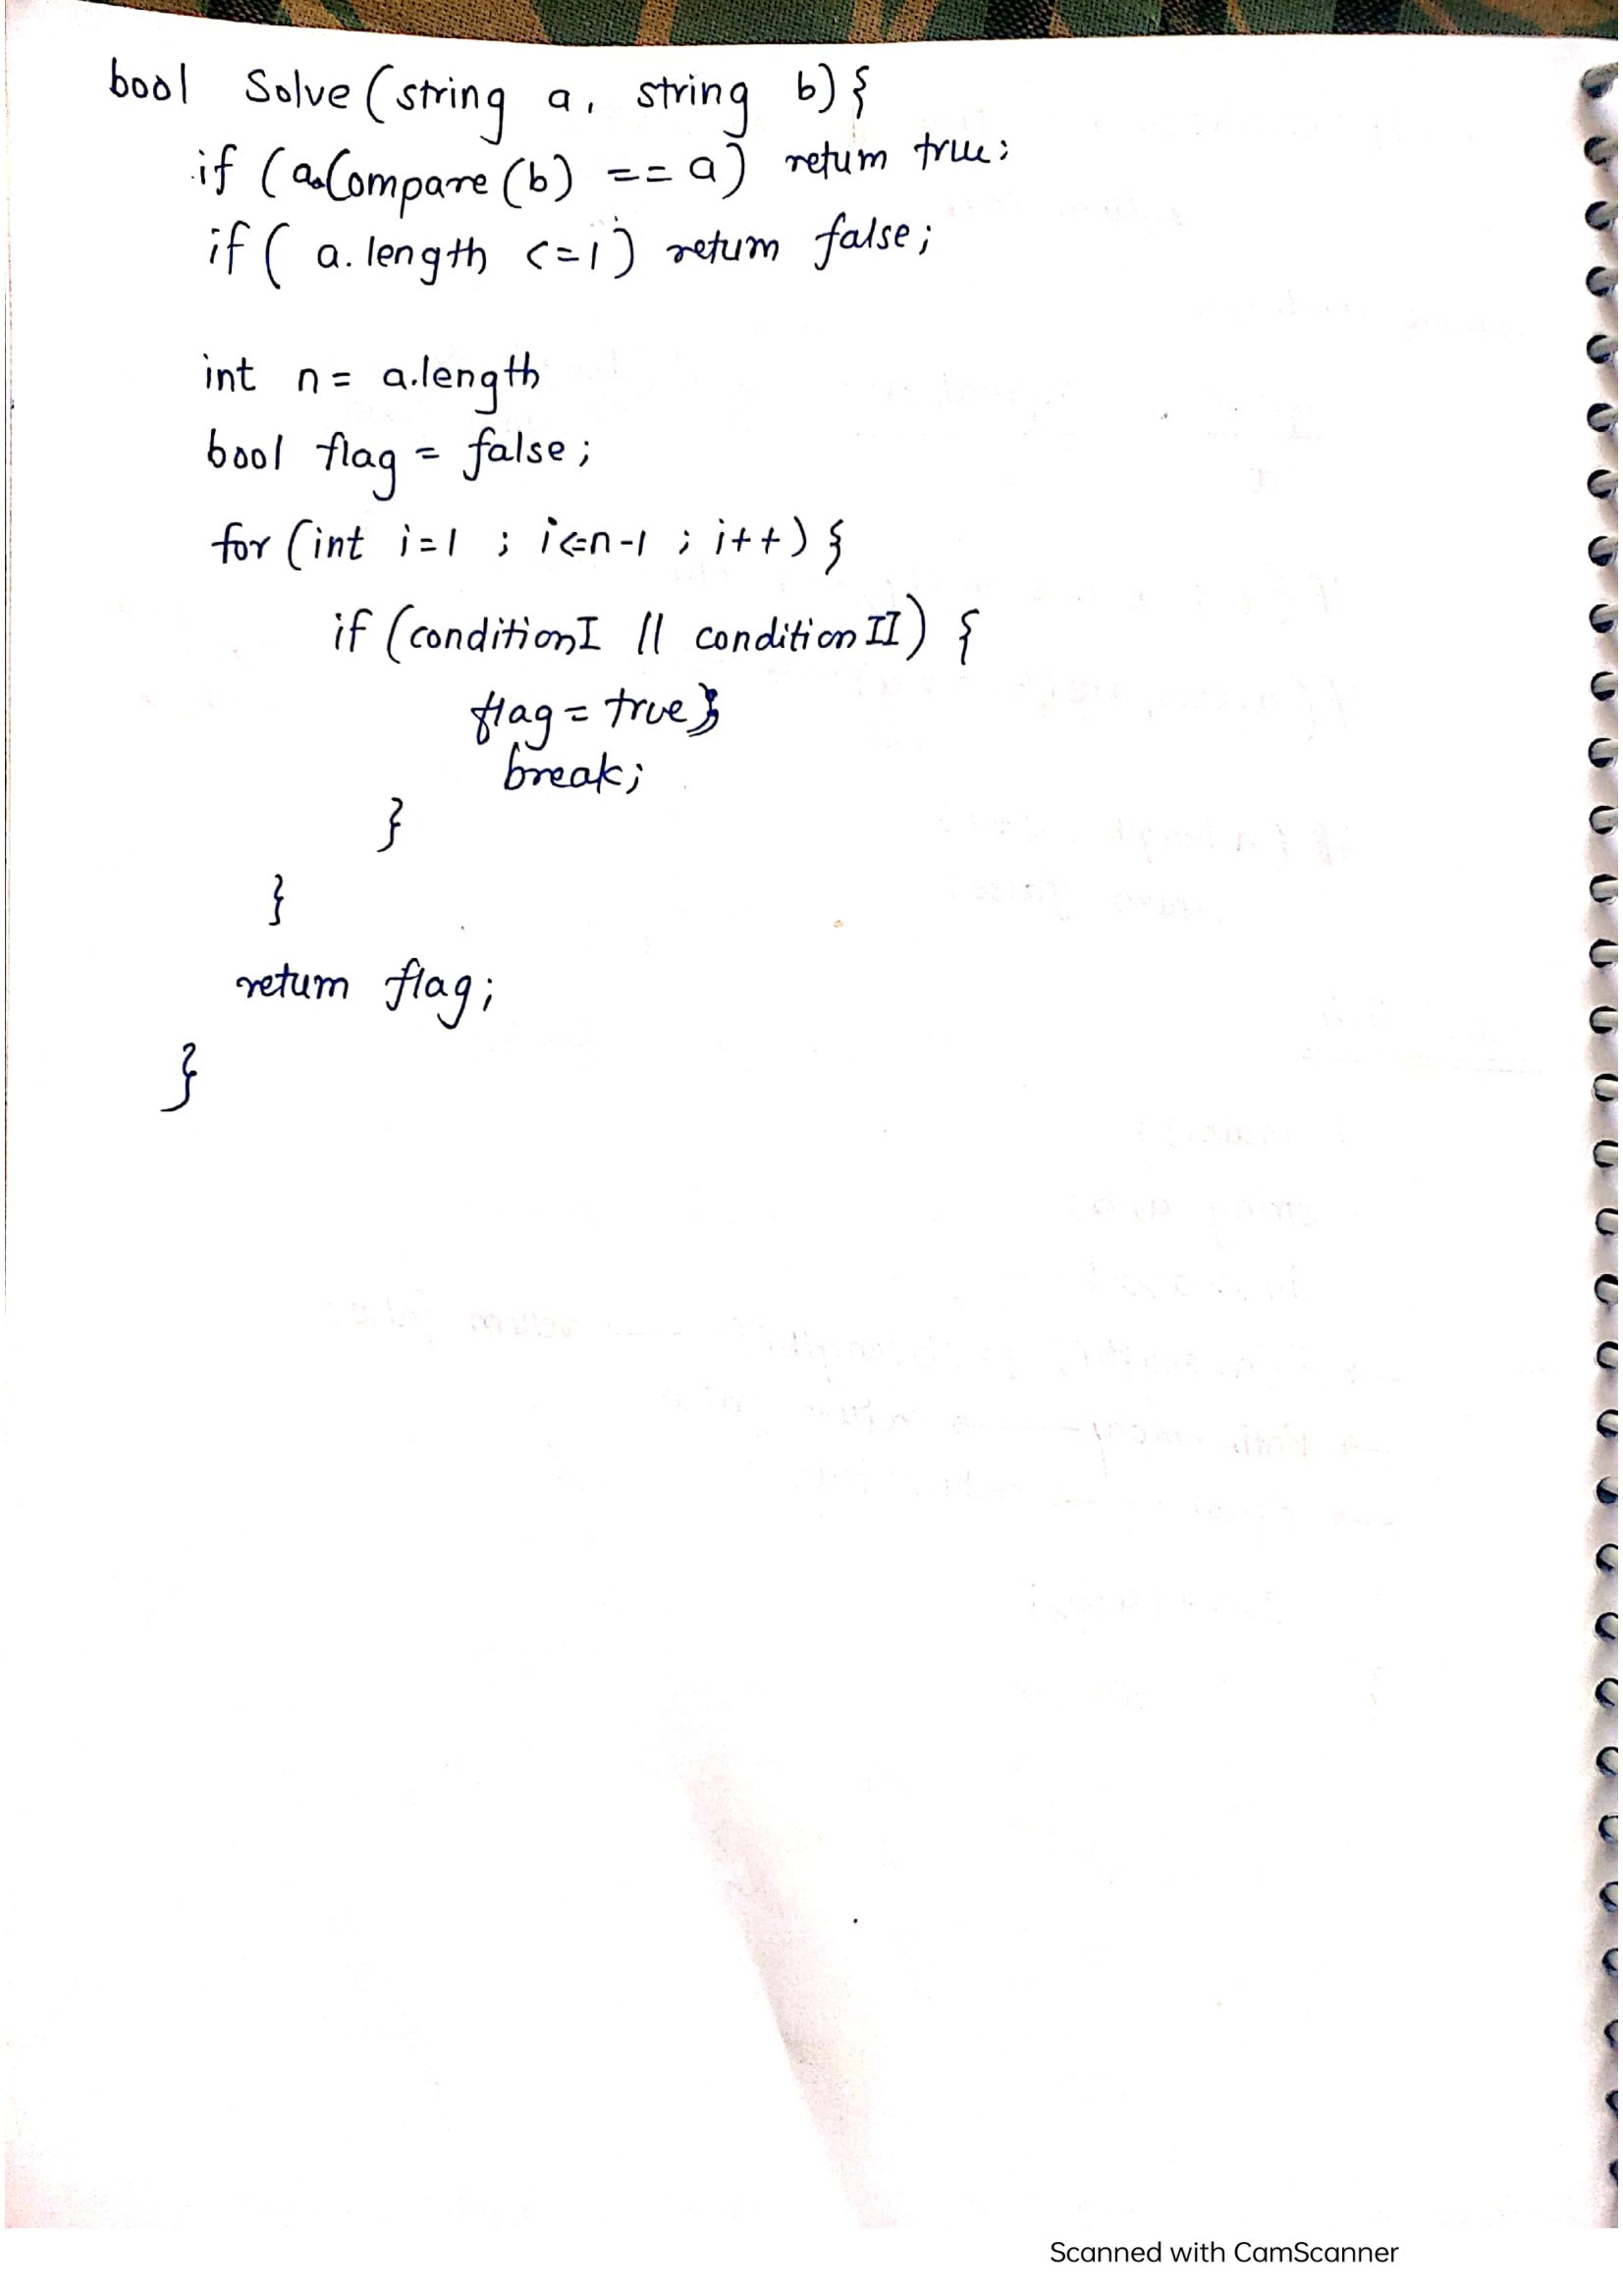 bool Solve (string a, string b) {
if (a.Compare (b) == a) return true;
if ( a.length <=1) return false;
int n = a.length
bool flag = false;
for (int i=1 ; i<=n-1 ; i++) {
if (condition I || condition II) {
flag = true;
break;
}
}
return flag;
}
Scanned with CamScanner